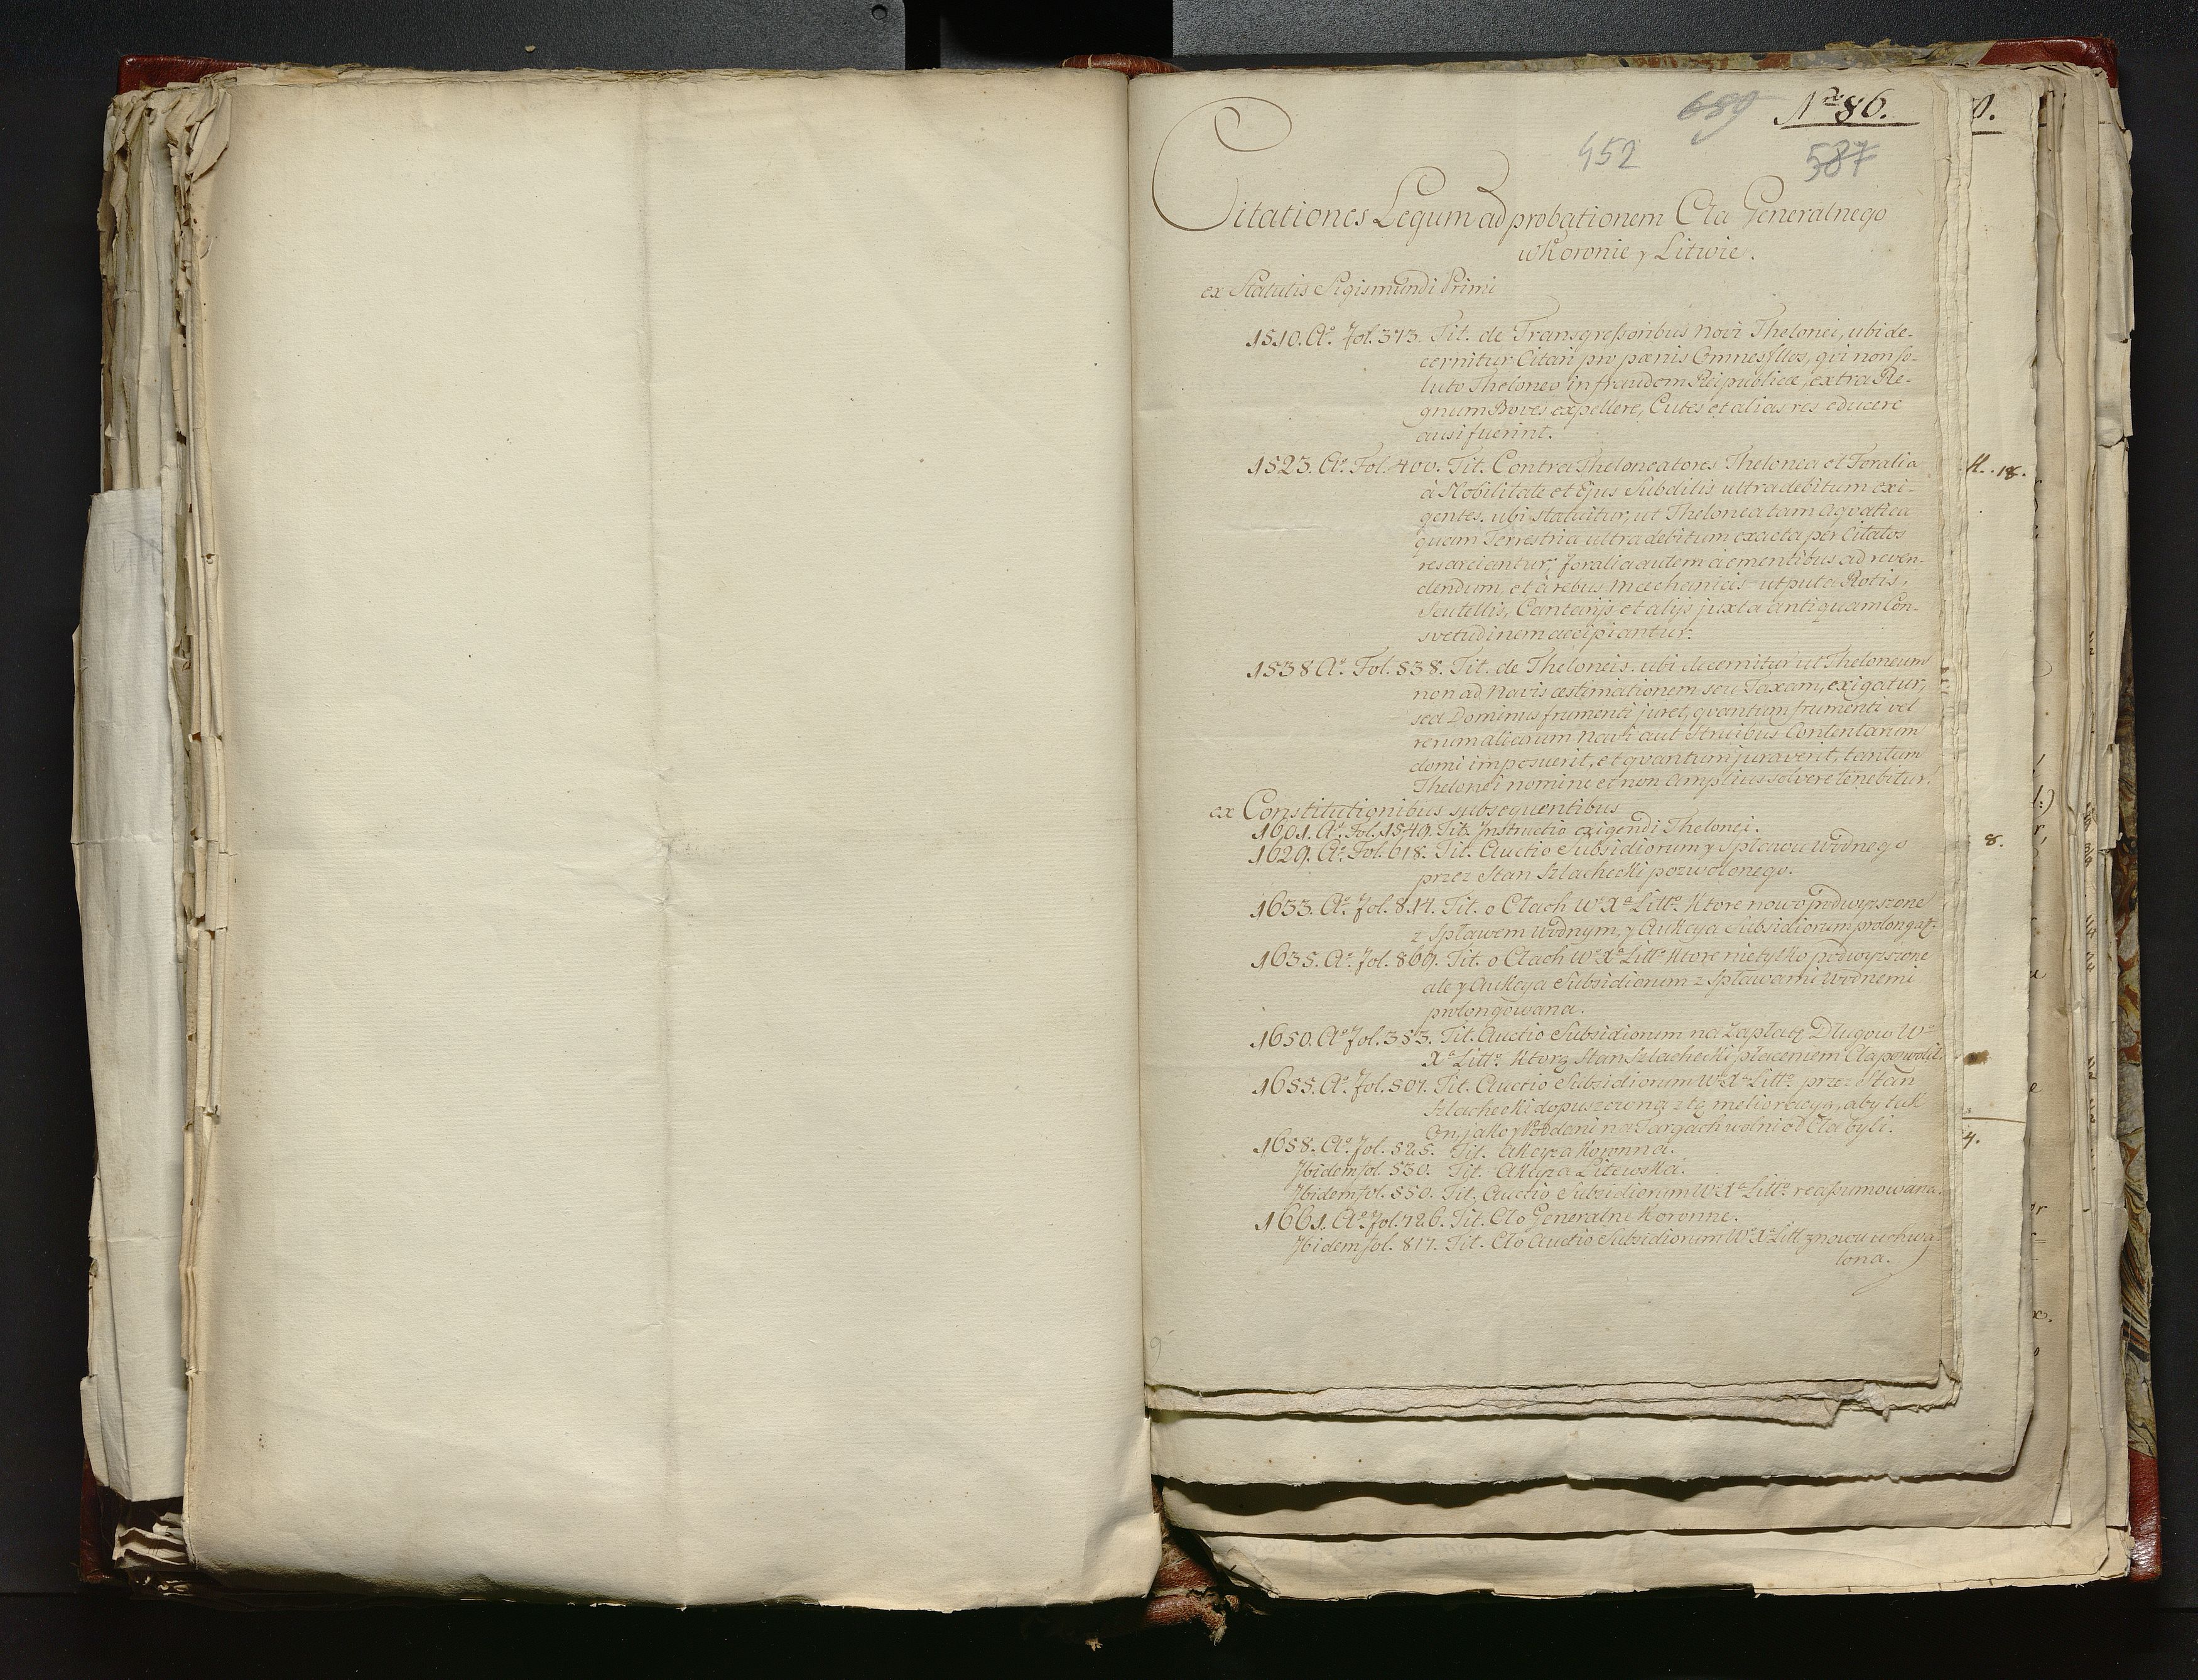 689 Nro 86.
452 587
Citationes Legum ad probationem Cła Generalnego
w Koronie y Litwie.
ex Statutis Sigismundi Primi
1510. Ao. Fol. 373. Tit. de Transgreſsoribus Novi Thelonei, ubi de-
cernitur Citari pro pænis Omnes Illos, qvi non so-
luto Theloneo in fraudem Reipublicæ, extra Re-
gnum Boves expellere, Cutes et alias res educere
ausi fuerint.
1523. Ao. Fol. 400. Tit. Contra Theloneatores Thelonea et Foralia
à Nobilitate et Ejus Subditis ultra debitum exi-
gentes. ubi statuitur, ut Thelonea tam aqvatica
quam Terrestria ultra debitum exacta per Citatos
resarciantur, Foralia autem à ementibus ad reven-
dendum, et à rebus mechanicis utputa Rotis,
Scutellis, Cantarijs et alijs juxta antiquam Con-
svetudinem accipiantur.
1538 Ao. Fol. 538. Tit. de Theloneis. ubi decernitur ut Theloneum
non ad Navis æstimationem seu Taxam, exigatur,
sed Dominus frumenti juret, qvantum frumenti vel
rerum aliarum Navi aut Struibus Contentarum
domi imposuerit, et qvantum juraverit, tantum
Thelonei nomine et non amplius solvere tenebitur.
ex Constitutionibus subsequentibus
1601. Ao. Fol. 1549. Tit. Instructio exigendi Thelonei.
1629. Ao. Fol. 618. Tit. Auctio Subsidiorum y Spławu Wodnego
przez Stan Szlachecki pozwolonego.
1633. Ao. Fol. 814. Tit. o Cłach Wo Xa Litto. Ktore nowo podwyszone
z Spławem Wodnym, y Aukcya Subsidiorum prolongat.
1635. Ao. Fol. 869. Tit. o Cłach Wo Xa Litto. Ktore nietylko podwyszone
ale y Aukcya Subsidiorum z Spławami Wodnemi
prolongowana.
1650. Ao. Fol. 353. Tit. Auctio Subsidiorum na Zapłatę Długow Wo
Xa Litto. Ktorą Stan Szlachecki płaceniem Cła pozwolił.
1655. Ao. Fol. 507. Tit. Auctio Subsidiorum Wo Xa Litto. przez Stan
Szlachecki dopuszczona z tą melioracyą, aby tak
On, jako y Poddani na Targach wolni od Cła byli.
1658. Ao. Fol. 525. Tit. Akcyza Koronna.
Ibidem fol. 530. Tit. Akcyza Litewska.
Ibidem fol. 550. Tit. Auctio Subsidiorum Wo Xa Litto. reaſsumowana.
1661. Ao. Fol. 726. Tit. Cło Generalne Koronne.
Ibidem fol. 817. Tit. Cło Auctio Subsidiorum Wo Xa Litt. znowu uchwa-
lona.